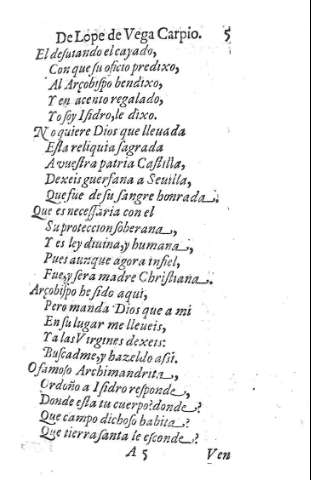 De Lope de Vega Carpio. 5
El desatando el cayado,
Con que su oficio predixo,
Al Arçobispo bendixo,
Y en acento regalado,
Yo soy Isidro, le dixo.
No quiere Dios que lleuada
Esta reliquia sagrada
A vuestra patria Castilla,
Dexeis guerfana a Seuilla,
Que fue de su sangre honrada.
Que es necessaria con el
Su proteccion soberana,
Y es ley diuina, y humana,
Pues aunque agora infiel,
Fue, y sera madre Christiana.
Arçobispo he sido aqui,
Pero manda Dios que a mi
En su lugar me lleueis,
Y a las Virgines dexeis:
Buscadme, y hazeldo assi.
O famoso Archimandrita,
Ordoño a Isidro responde,
Donde esta tu cuerpo? donde?
Que campo dichoso habita?
Que tierra santa le esconde?
A 5 Ven